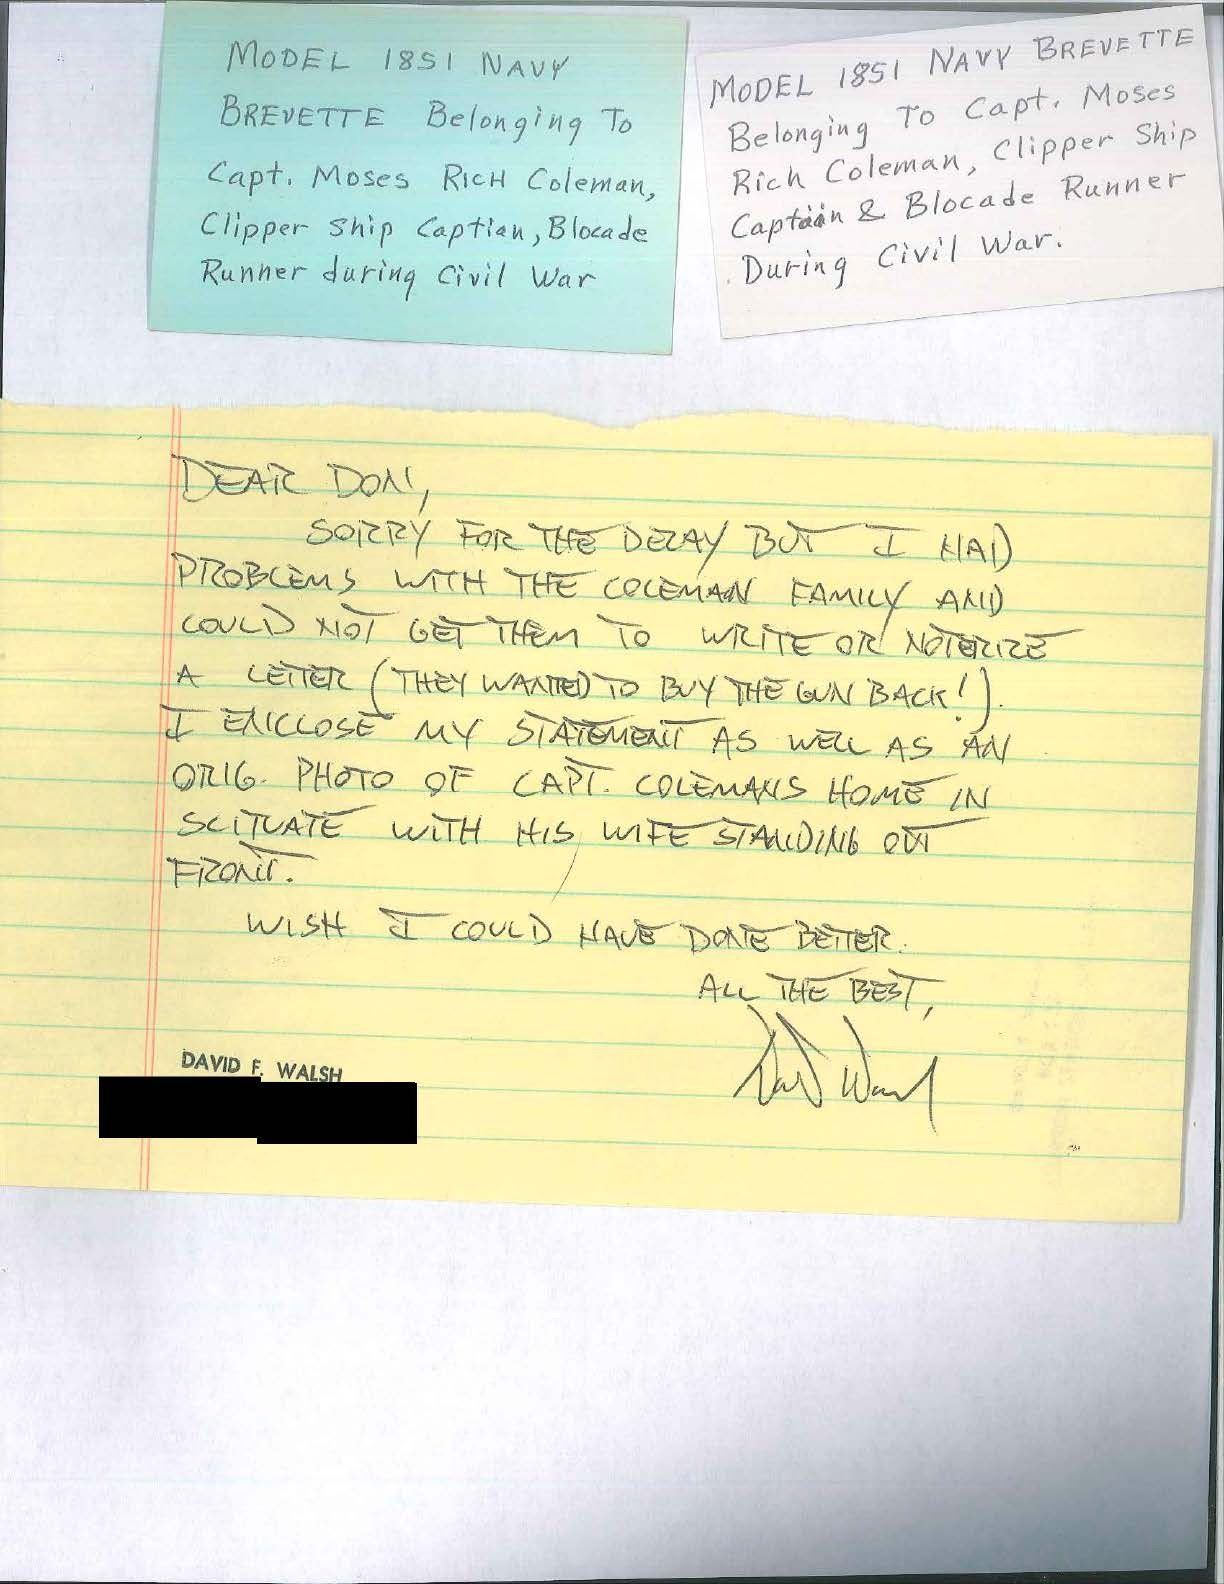 MODEL 1851 NAVY
BREVETTE Belonging To
Capt. Moses RICH Coleman,
Clipper Ship Captian, Blocade
Runner during Civil War
MODEL 1851 NAVY BREVETTE
Belonging To Capt. Moses
Rich Coleman, Clipper Ship
Captain & Blocade Runner
During Civil War.
DEAR DON,
SORRY FOR THE DELAY BUT I HAD
PROBLEMS WITH THE COLEMAN FAMILY AND
COULD NOT GET THEM TO WRITE OR NOTERIZE
A LETTER (THEY WANTED TO BUY THE GUN BACK!).
I ENCLOSE MY STATEMENT AS WELL AS AN
ORIG. PHOTO OF CAPT. COLEMANS HOME IN
SCITUATE WITH HIS WIFE STANDING OUT
FRONT.
WISH I COULD HAVE DONE BETTER.
ALL THE BEST,
David Walsh
DAVID F. WALSH